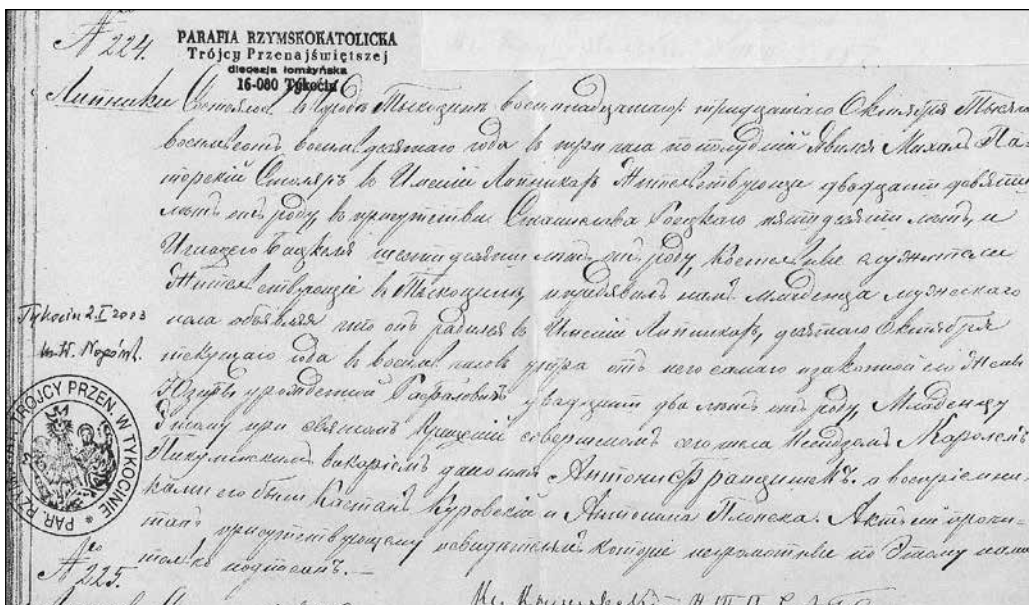 № 224.
PARAFIA RZYMSKOKATOLICKA
Trójcy Przenajświętszej
diecezja łomżyńska
16-080 Tykocin
Липники Состоялось въ городѣ Тыкоцинѣ восемнадцатаго/тридцатаго Октября Тысяча
восемьсотъ восемьдесятаго года въ три часа пополудни Явился Михалъ Па-
торскій Столяръ въ Имѣніи Липникахъ Жительствующій двадцати девяти
лѣтъ отъ роду, въ присутствіи Станислава пятидесяти лѣтъ, и
Игнатего шестидесяти лѣтъ отъ роду, Костельные служители
Жительствующіе въ Тыкоцинѣ, и предъявилъ намъ Младенца мужескаго
пола объявляя что онъ родился въ Имѣніи Липникахъ, десятаго Октября
текущаго года въ восемь часовъ утра отъ него самаго и законной его Жены
Юзефы урожденной Рафаловичъ двадцати два лѣтъ отъ роду, Младенцу
Этому при святомъ Крещеніи совершенномъ сего числа Ксендзомъ Каролемъ
викаріемъ дано имя Антони Францишекъ. а воспріемни-
ками его были Каетанъ Куровскій и Антонина Плонска. Актъ сей прочи-
танъ присутствующему и свидѣтелямъ которые неграмотные по Этому нами
только подписанъ.—
Tykocin 2.I 2003
PAR. RZYM. TRÓJCY PRZEN. W TYKOCINIE
№ 225.